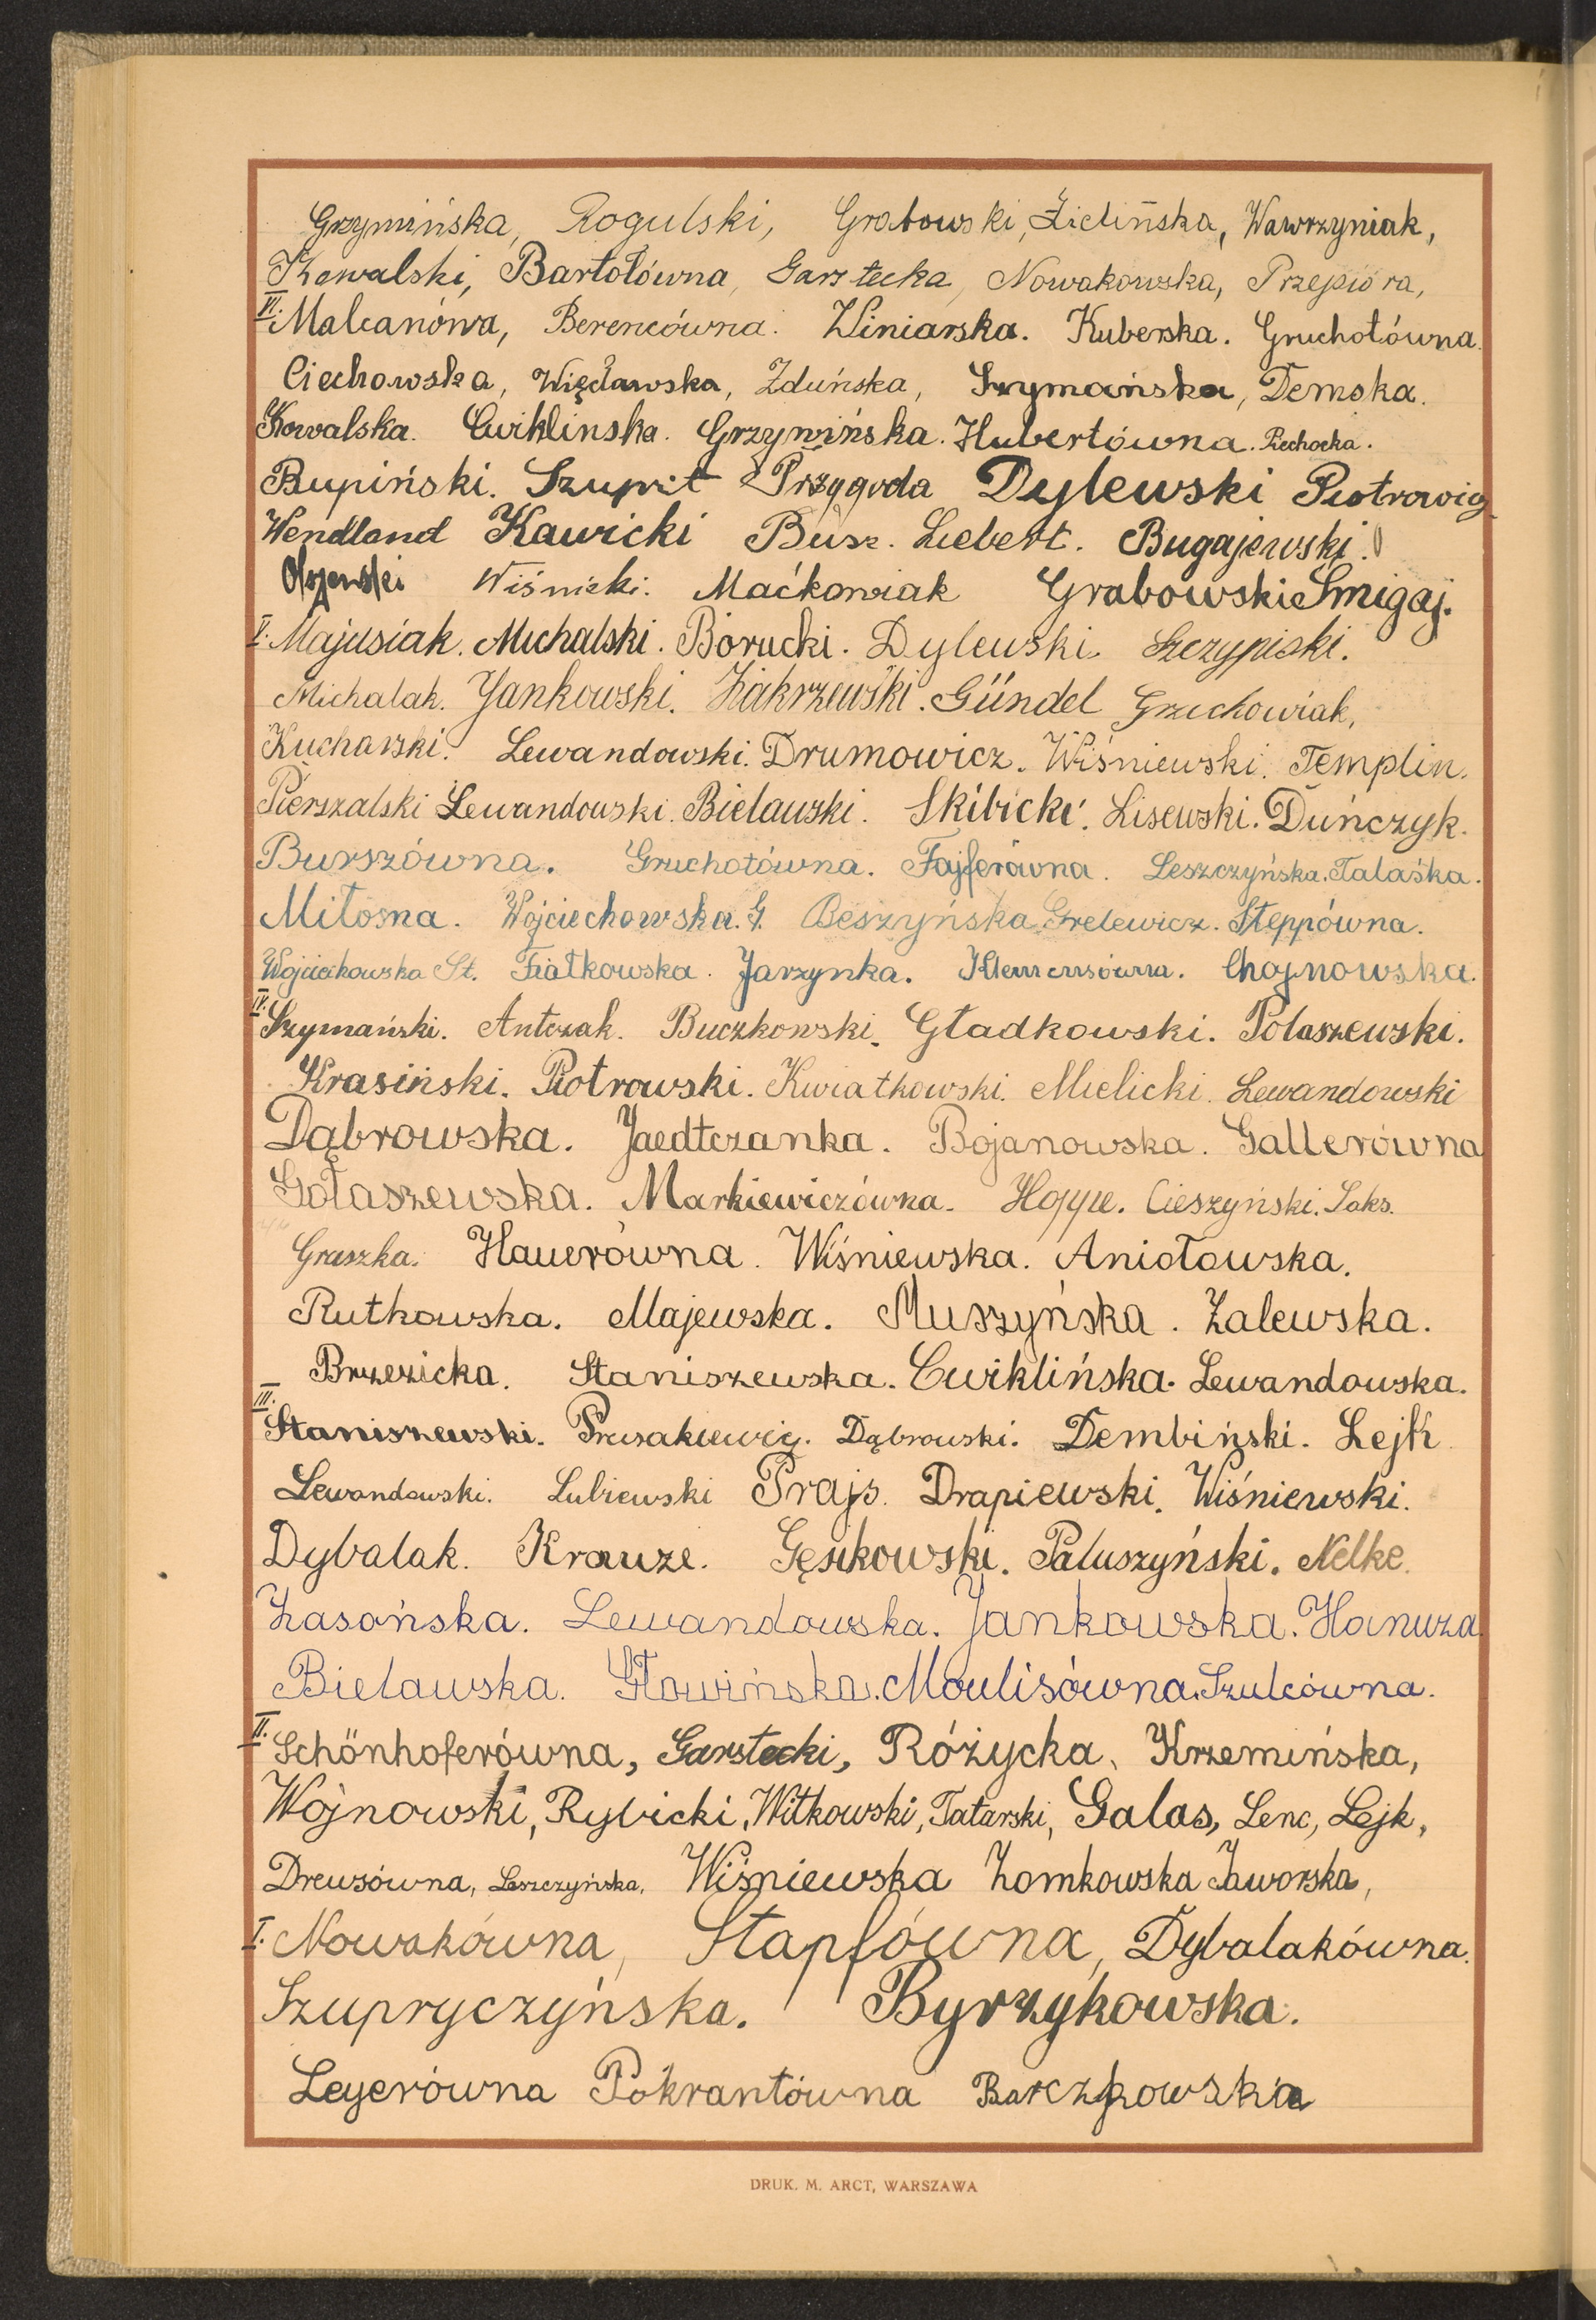 Grzymińska, Rogulski, Grabowski, Zielińska, Wawrzyniak,
Kowalski, Bartołówna, Garstecka, Nowakowska, Przepióra,
VI. Malcanówa, Berencówna. Winiarska. Kuberska. Gruchotówna.
Ciechowska, Więcławska, Zduńska, Szymańska, Demska.
Kowalska. Cwiklinska. Grzywińska. Hubertówna. Piechocka.
Rupiński. Szuprit Przygoda Dylewski Piotrowicz
Wendland Kawicki Busz. Liebert. Bugajewski.
Olszewski Wiśnicki. Maćkowiak Grabowski Śmigaj.
V. Majusiak. Michalski. Borucki. Dylewski Szczypiski.
Michalak. Jankowski. Zakrzewski. Gündel Gruchowiak,
Kucharski. Lewandowski. Drumowicz. Wiśniewski. Templin.
Pierszalski Lewandowski. Bielawski. Skibicki. Lisewski. Duńczyk.
Burszówna. Gruchotówna. Fajferówna. Leszczyńska. Talaśka.
Miłosna. Wojciechowska. G. Beszyńska Grelewicz. Steppówna.
Wojciechowska St. Fiałkowska. Jarzynka. Klemensówna. Chojnowska.
IV. Szymański. Antczak. Buczkowski. Gładkowski. Połaszewski.
Krasiński. Piotrowski. Kwiatkowski. Mielicki. Lewandowski
Dąbrowska. Jaedtczanka. Bojanowska. Gallerówna
Gołaszewska. Markiewiczówna. Hoppe. Cieszyński. Saks.
Graszka. Hauerówna. Wiśniewska. Aniołowska.
Rutkowska. Majewska. Muszyńska. Zalewska.
Brzezicka. Staniszewska. Cwiklińska. Lewandowska.
III. Staniszewski. Prusakiewicz. Dąbrowski. Dembiński. Lejk
Lewandowski. Lubiewski Prajs. Drapiewski. Wiśniewski.
Dybalak. Krauze. Gęsikowski. Paluszyński. Nelke.
Zasońska. Lewandowska. Jankowska. Hanuza.
Bielawska. Gławińska. Moulisówna. Szulcówna.
II. Schönhoferówna, Garstecki, Różycka, Krzemińska,
Wojnowski, Rybicki, Witkowski, Tatarski, Galas, Lenc, Lejk,
Drewsówna, Leszczyńska, Wiśniewska Zomkowska Jaworska,
I. Nowakówna, Stapfówna, Dybalakówna.
Szupryczyńska. Byrzykowska.
Leyerówna Pokrantówna Barczkowska
DRUK. M. ARCT, WARSZAWA